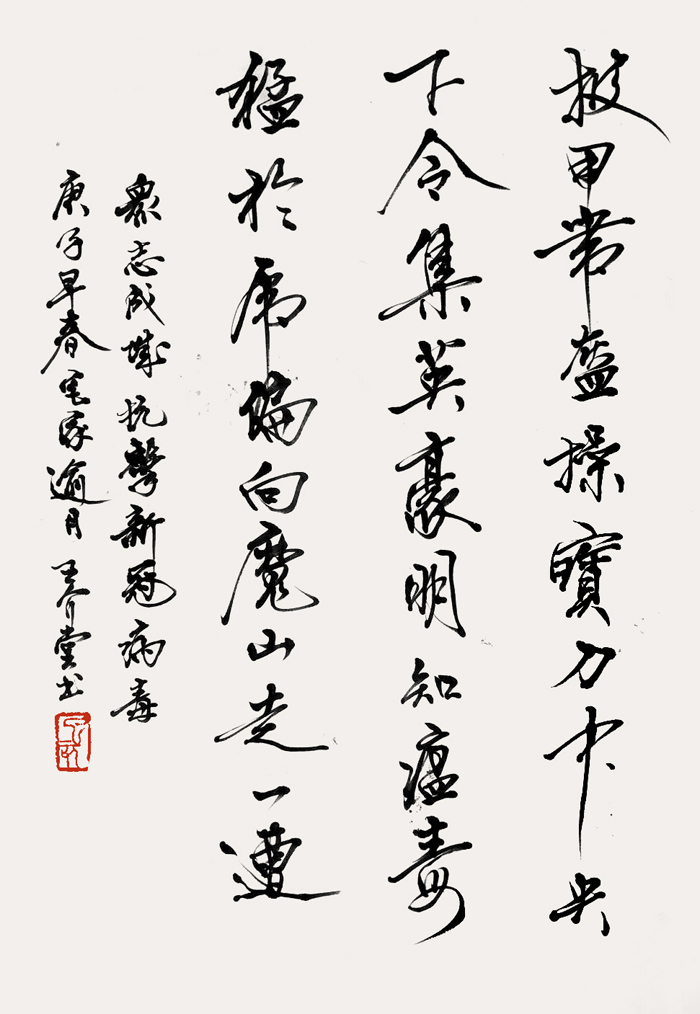 披甲带盔操寳刀中央
下令集英豪明知瘟毒
猛於虎偏向魔山走一遭
衆志成城抗擊新冠病毒
庚子早春宅家逾月 养堂书